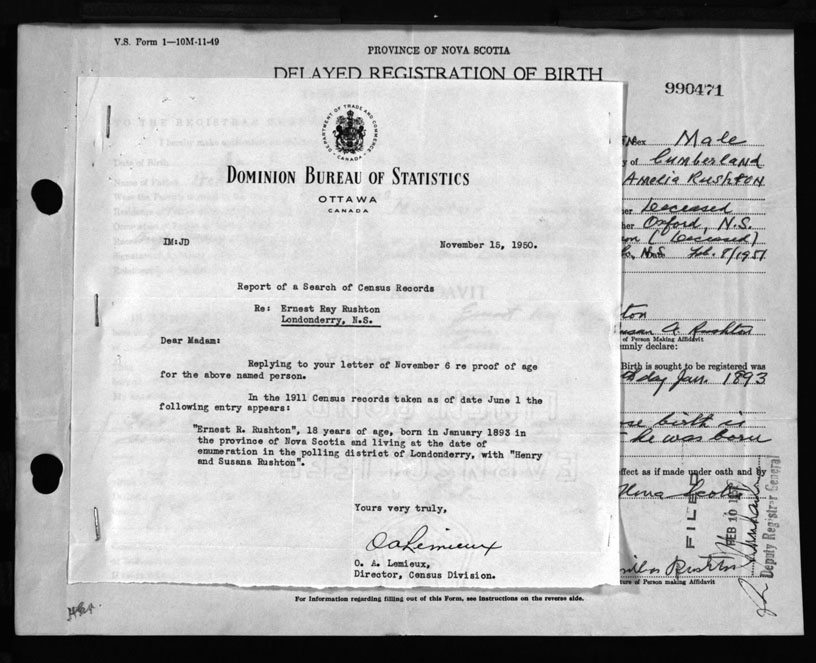 V.S. Form 1—10M-11-49
PROVINCE OF NOVA SCOTIA
DELAYED REGISTRATION OF BIRTH
990471
DEPARTMENT OF TRADE AND COMMERCE
CANADA
DOMINION BUREAU OF STATISTICS
OTTAWA
CANADA
IM:JD
November 15, 1950.
Report of a Search of Census Records
Re: Ernest Ray Rushton
Londonderry, N.S.
Dear Madam:
Replying to your letter of November 6 re proof of age
for the above named person.
In the 1911 Census records taken as of date June 1 the
following entry appears:
"Ernest R. Rushton", 18 years of age, born in January 1893 in
the province of Nova Scotia and living at the date of
enumeration in the polling district of Londonderry, with "Henry
and Susana Rushton".
Yours very truly,
OALemieux
O. A. Lemieux,
Director, Census Division.
Sex Male
of Cumberland
Amelia Rushton
Deceased
Oxford, N.S.
(Deceased)
Feb. 8/1951
Susan A Rushton
of Person Making Affidavit
declare:
Birth is sought to be registered was
day Jan. 1893
birth is
he was born
effect as if made under oath and by
Nova Scotia
FILED
FEB 10
Deputy Registrar General
Rushton
of Person making Affidavit
For Information regarding filling out of this Form, see Instructions on the reverse side.